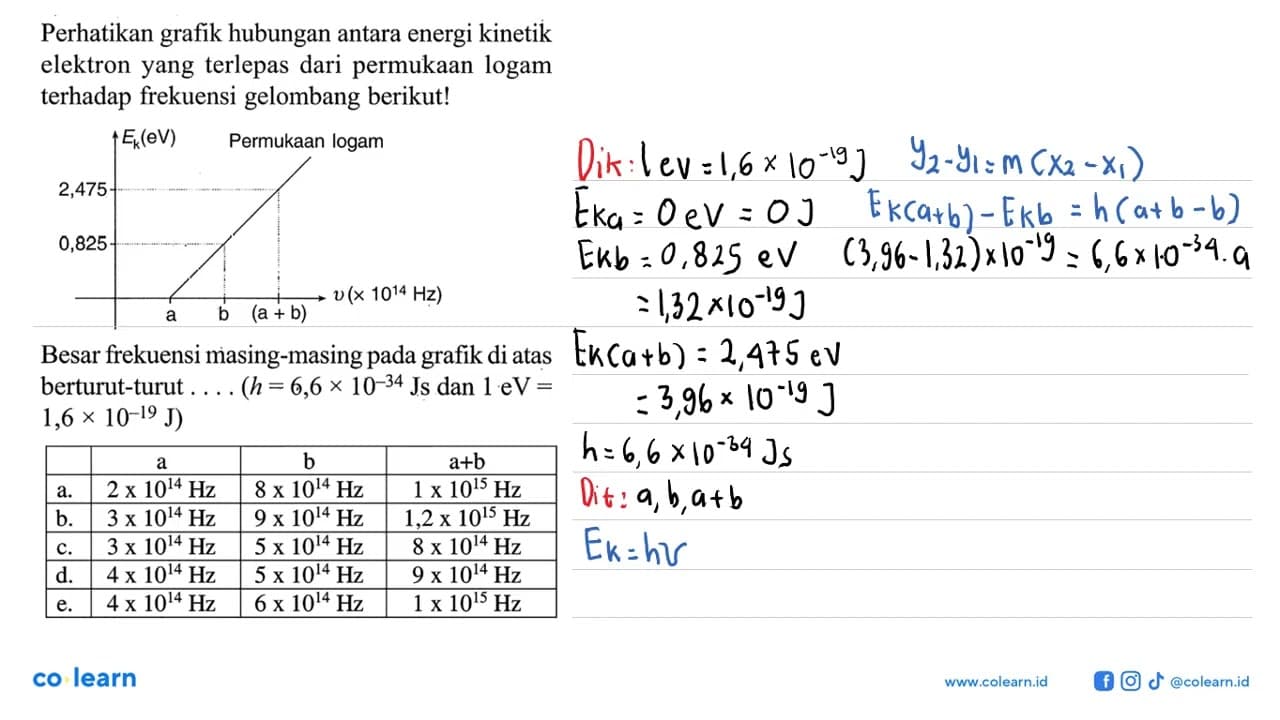 Perhatikan grafik hubungan antara energi kinetik
elektron yang terlepas dari permukaan logam
terhadap frekuensi gelombang berikut!
Eₖ(eV)
Permukaan logam
2,475
0,825
υ(× 10¹⁴ Hz)
a b (a + b)
Besar frekuensi masing-masing pada grafik di atas
berturut-turut . . . . (h = 6,6 × 10⁻³⁴ Js dan 1 eV =
1,6 × 10⁻¹⁹ J)
a b a+b
a. 2 x 10¹⁴ Hz 8 x 10¹⁴ Hz 1 x 10¹⁵ Hz
b. 3 x 10¹⁴ Hz 9 x 10¹⁴ Hz 1,2 x 10¹⁵ Hz
c. 3 x 10¹⁴ Hz 5 x 10¹⁴ Hz 8 x 10¹⁴ Hz
d. 4 x 10¹⁴ Hz 5 x 10¹⁴ Hz 9 x 10¹⁴ Hz
e. 4 x 10¹⁴ Hz 6 x 10¹⁴ Hz 1 x 10¹⁵ Hz
Dik: 1 eV = 1,6 × 10⁻¹⁹ J
Eka = 0 eV = 0 J
Ekb = 0,825 eV
= 1,32 × 10⁻¹⁹ J
Ek(a+b) = 2,475 eV
= 3,96 × 10⁻¹⁹ J
h = 6,6 × 10⁻³⁴ Js
Dit: a, b, a+b
Ek = hv
y₂ - y₁ = m (x₂ - x₁)
Ek(a+b) - Ekb = h(a+b-b)
(3,96 - 1,32) × 10⁻¹⁹ = 6,6 × 10⁻³⁴ . a
co learn
www.colearn.id
@colearn.id